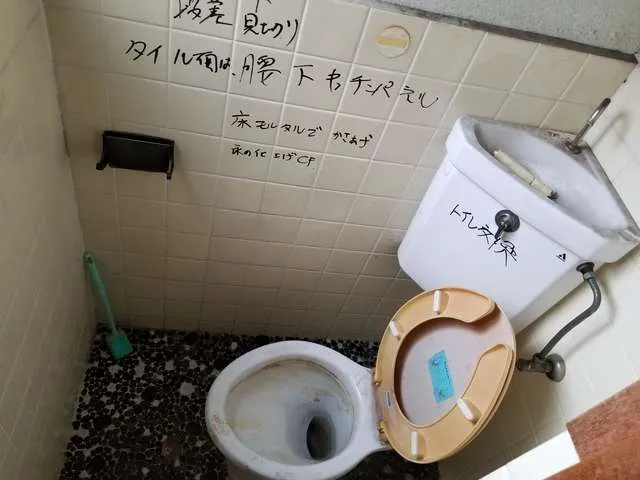 段差 下
見切り
タイル面は、腰下キッチンパネル
床モルタルで かさあげ
床の仕上げCF.
トイレ交換